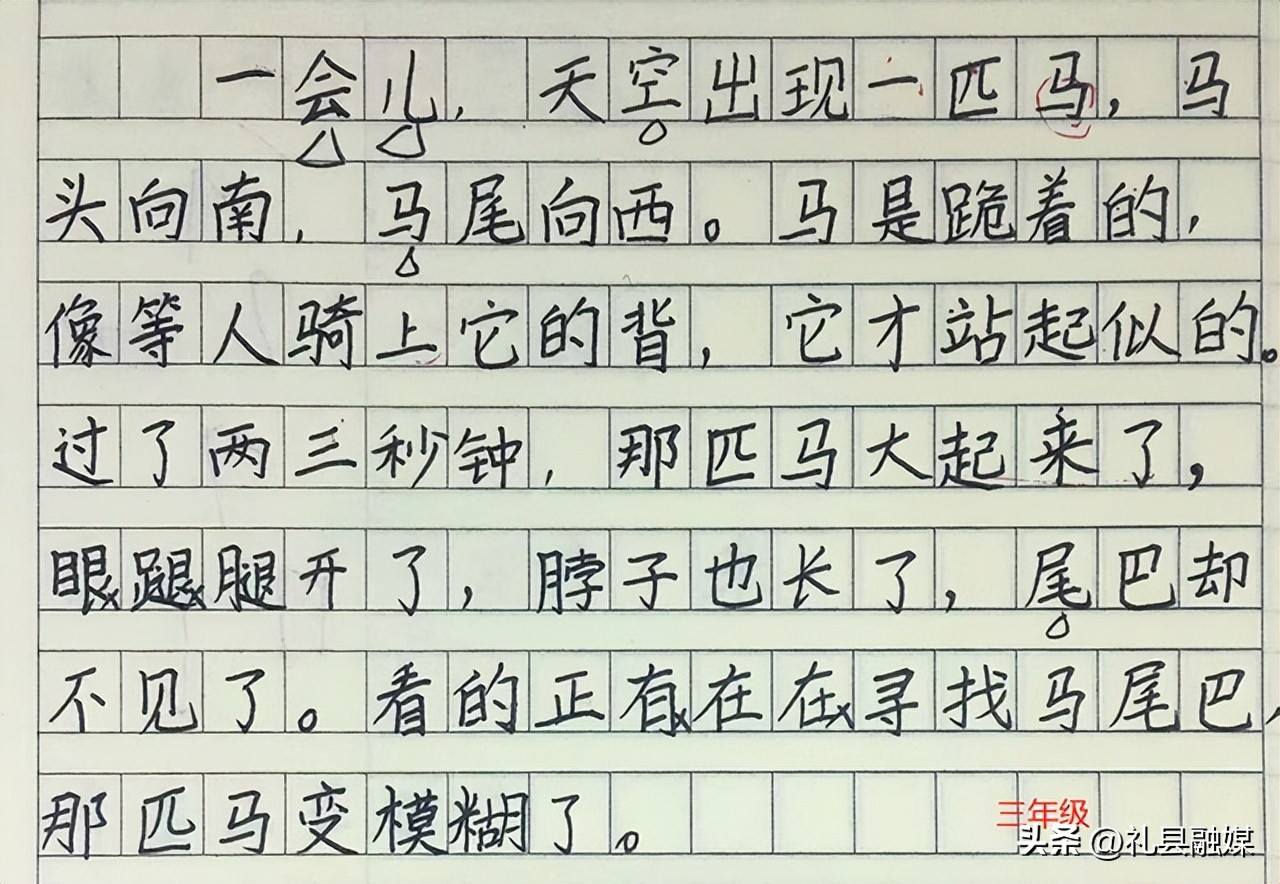 一会儿，天空出现一匹马，马
头向南，马尾向西。马是跪着的，
像等人骑上它的背，它才站起似的。
过了两三秒钟，那匹马大起来了，
眼腿腿开了，脖子也长了，尾巴却
不见了。看的正有在在寻找马尾巴，
那匹马变模糊了。
三年级
头条 @礼县融媒